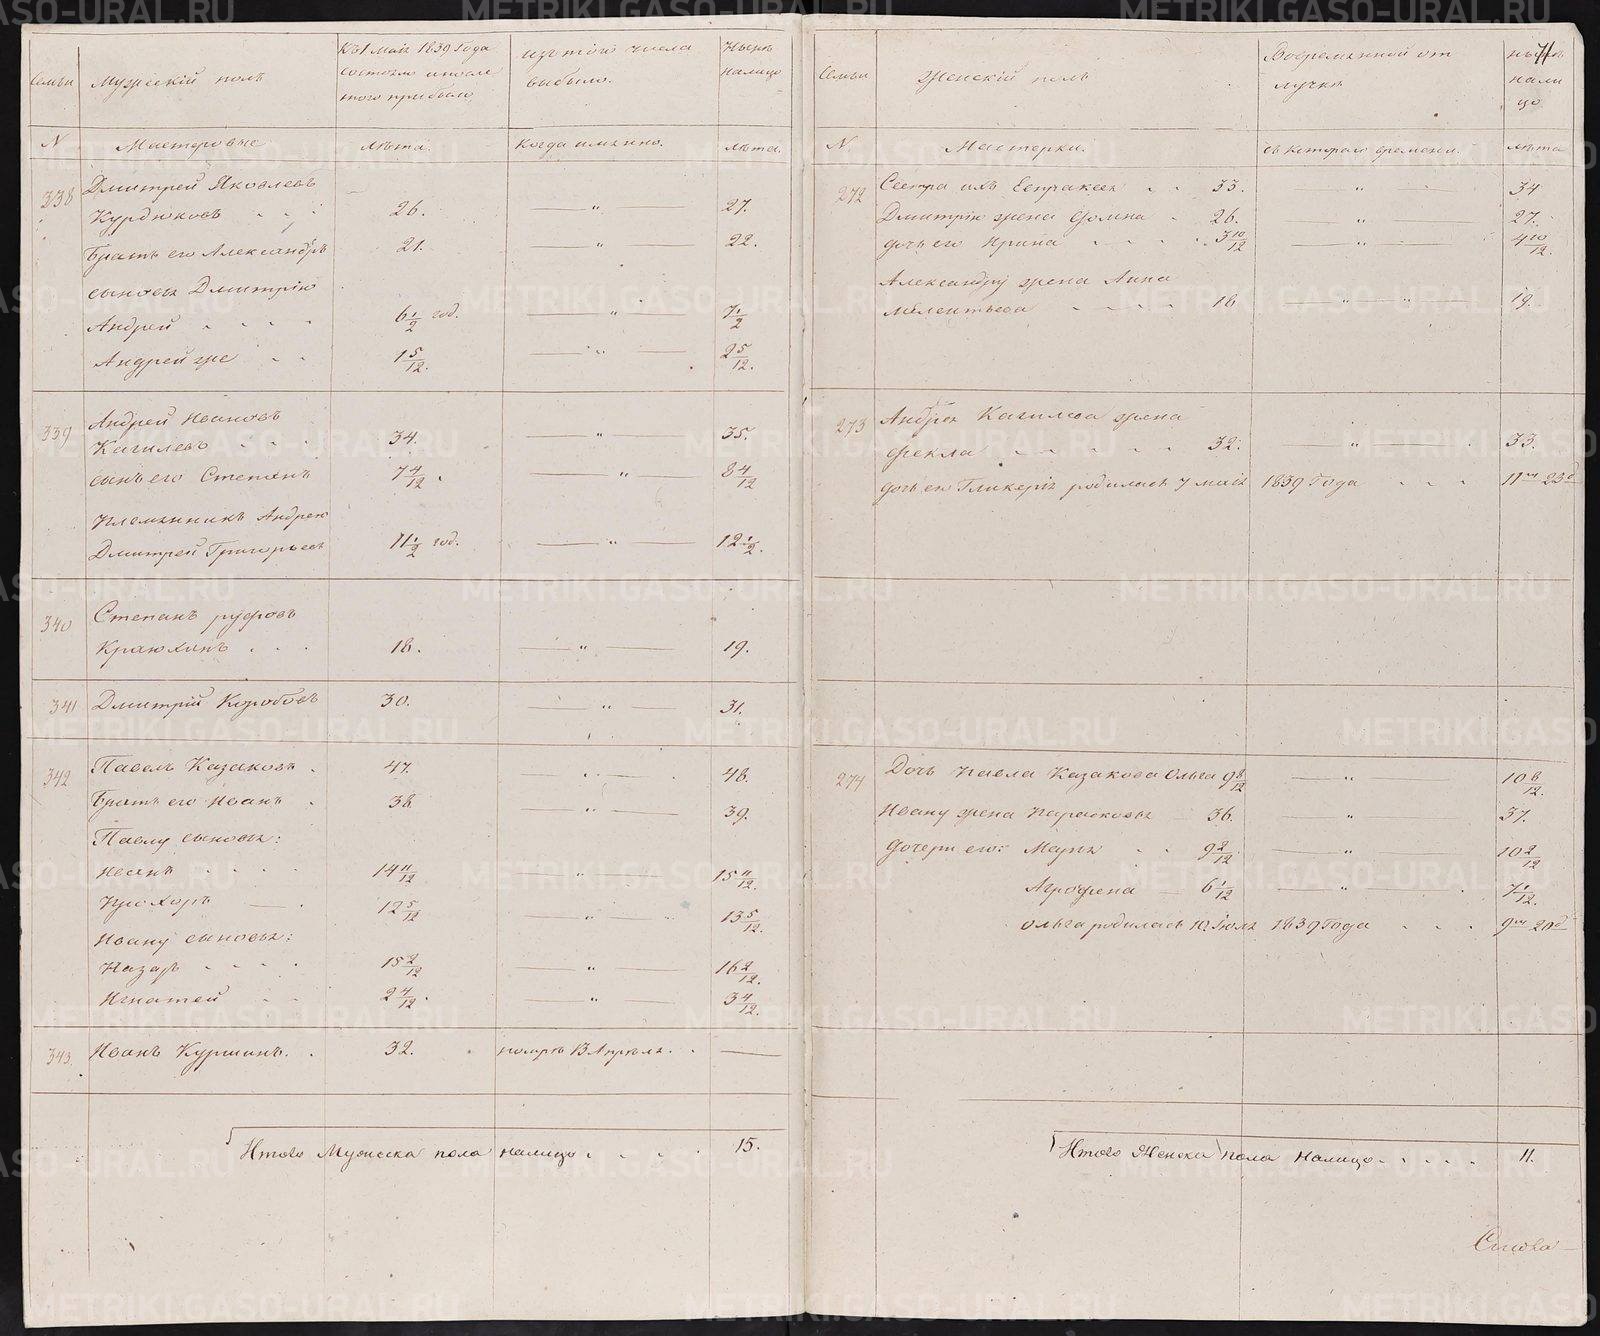 Семьи Мужескій полъ
Къ 1 Маія 1839 года
состояло и после
того прибыло
изъ того числа
выбыло.
Ныне
налицо
N Мастеровые лѣта. Когда имянно. лѣта.
338 Дмитрей Яковлевъ
Курдюковъ 26. — " — 27.
Братъ его Александръ 21. — " — 22.
сыновья Дмитрію
Андрей 6 1/2 год. — " — 7 1/2
Андрей же 1 5/12. — " — 2 5/12.
339 Андрей Ивановъ
Кагилевъ 34. — " — 35.
сынъ его Степанъ 7 4/12. — " — 8 4/12
племянникъ Андрея
Дмитрей Григорьевъ 11 1/2 год. — " — 12 1/2.
340 Степанъ руфовъ
Краюхинъ 18. — " — 19.
341 Дмитрій Коробовъ 30. — " — 31.
342 Павелъ Казаковъ 47. — " — 48.
Братъ его Иванъ 38 — " — 39.
Павлу сыновья:
Иванъ 14 11/12 — " — 15 11/12.
Прохоръ 12 5/12 — " — 13 5/12.
Ивану сыновья:
Назаръ 15 2/12 — " — 16 2/12.
Игнатей 2 4/12. — " — 3 4/12.
343 Иванъ Куршинъ. 32. помре 13 Апреля. —
Итого Мужеска пола налицо 15.
71
Семьи Женскій полъ
Вовременной от
лучке
ныне
нали
цо
N Мастерки. съ котораго времени. лѣта
272 Сестра ихъ Евпраксея 33. — " — 34
Дмитрію жена Фомна 26. — " — 27.
дочь его Ирина 3 10/12 — " — 4 10/12.
Александру жена Анна
Мелентьева 18 — " — " — 19.
273 Андрея Кагилева жена
Фекла 32. — " — 33.
дочь ея Гликерія родилась 7 маія 1839 года 11 м 23 д
274 Дочь Павла Казакова Ольга 9 8/12 — " — 10 8/12.
Ивану жена Парасковья 36. — " — 37.
Дочери его: Марья 9 2/12 — " — 10 2/12
Агрофена 6 1/12 — " — 7 1/12.
Ольга родилась 10 Іюля 1839 года 9 м 20 д
Итого Женска пола налицо 11.
METRIKI.GASO-URAL.RU